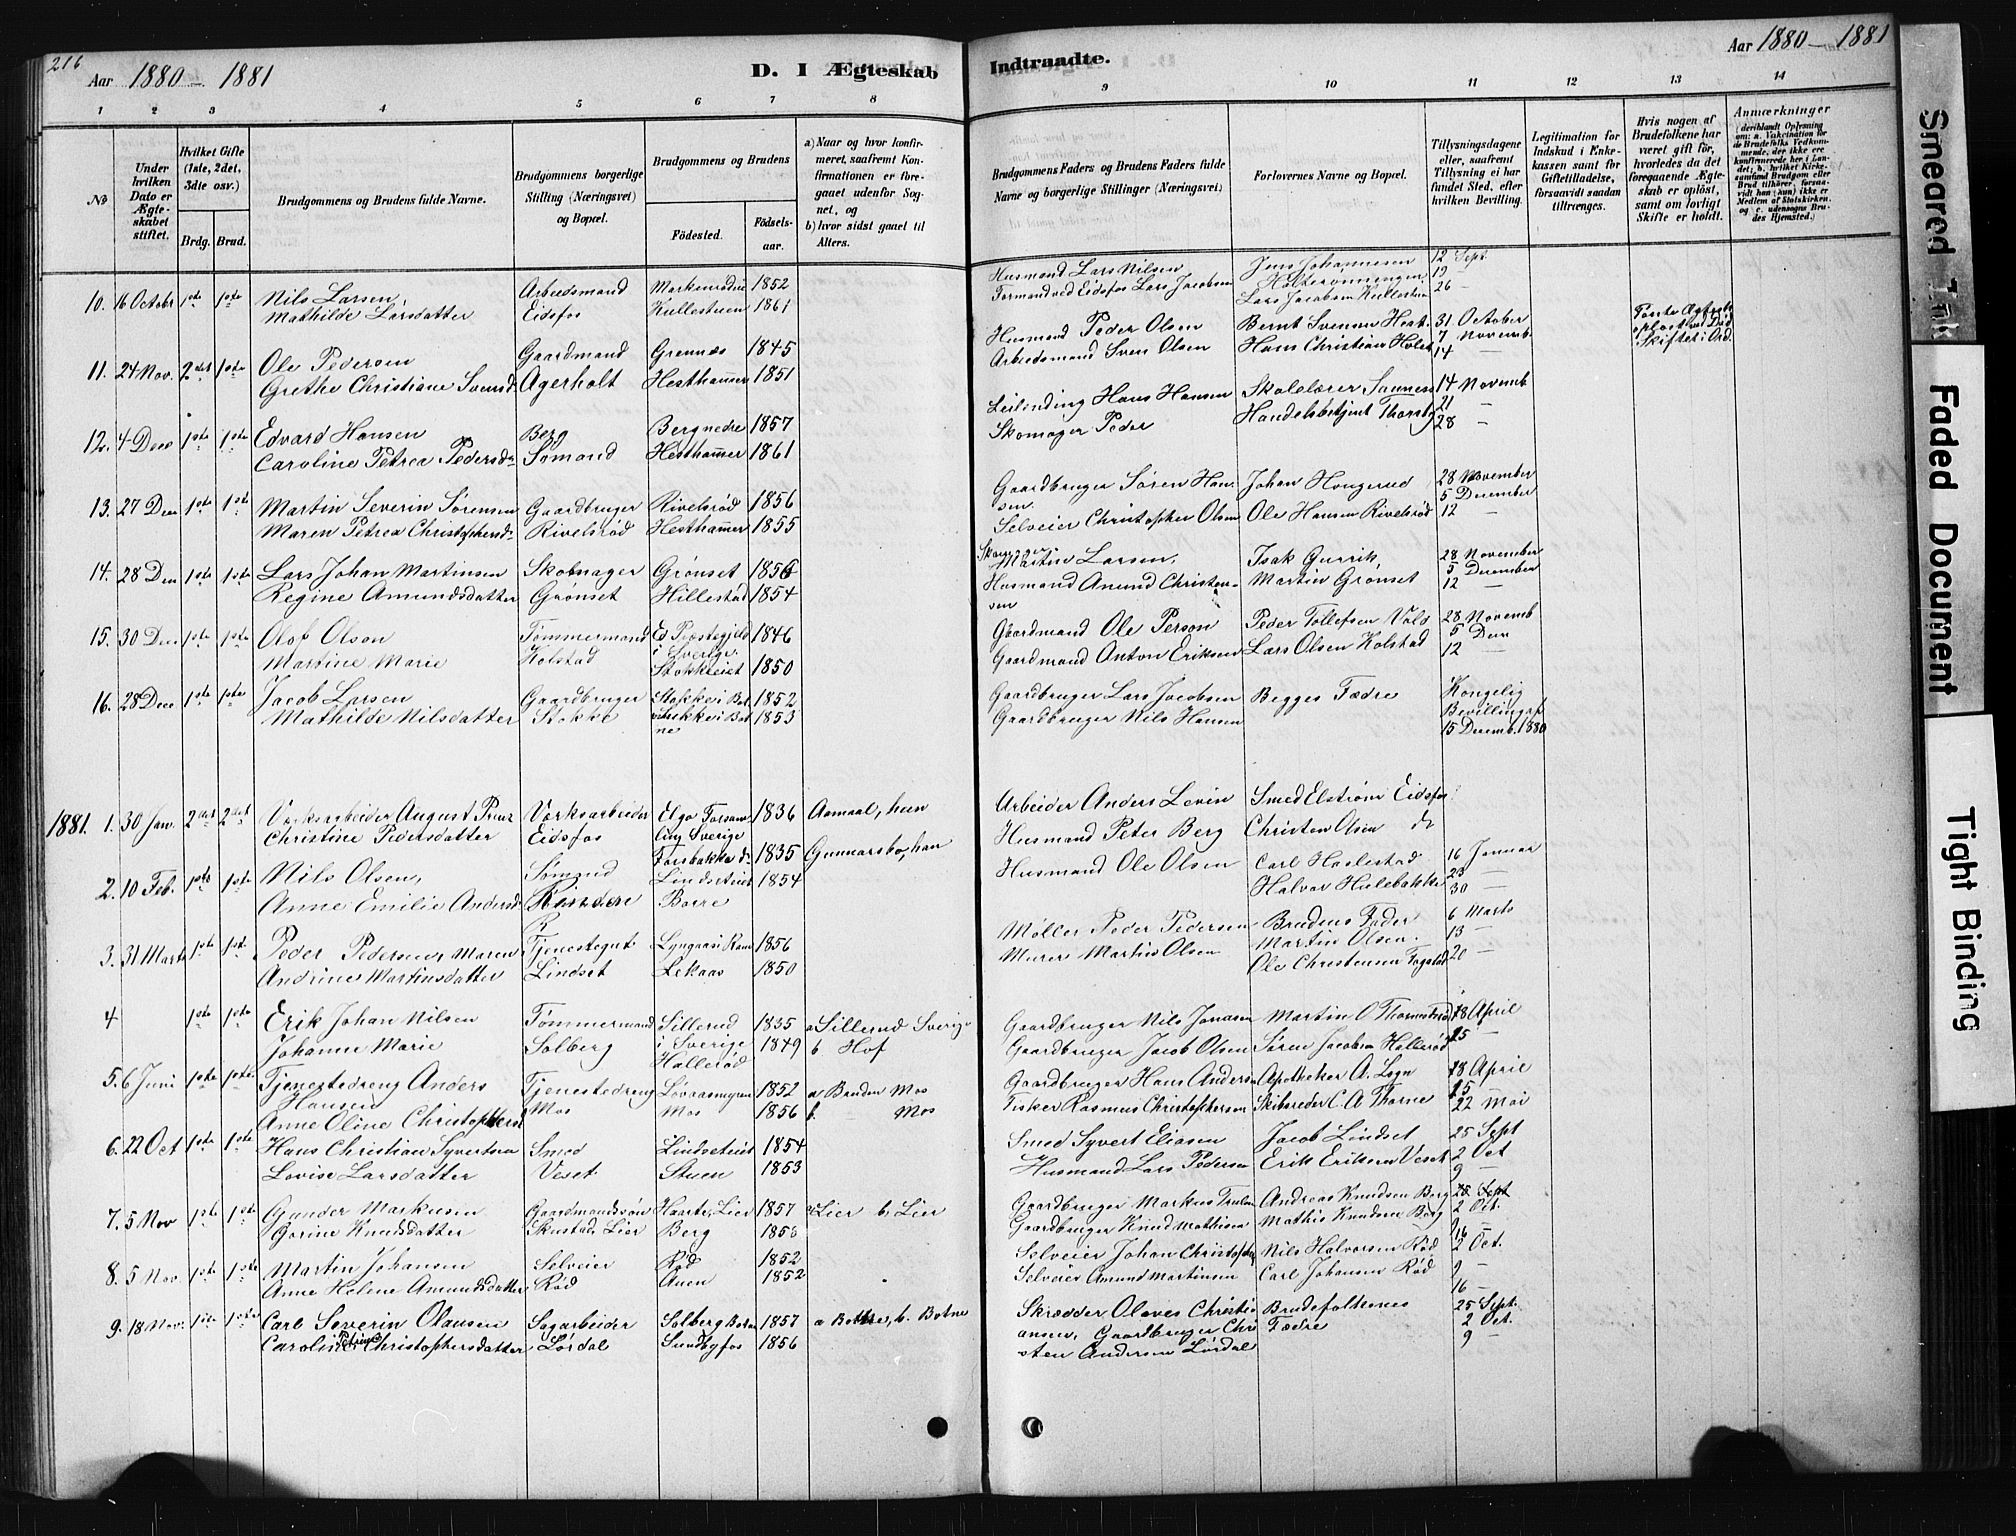 216
Aar 1880 - 1881
D. I Ægteskab
1 2 3 4 5 6 7 8
No
Under hvilken Dato er Ægteskabet stiftet.
Hvilket Gifte (1ste, 2det, 3die osv.)
Brdg. Brud.
Brudgommens og Brudens fulde Navne.
Brudgommens borgerlige Stilling (Næringsvei) og Bopæl.
Brudgommens og Brudens
Fødested.
Fødselsaar.
a) Naar og hvor konfirmeret, saafremt Konfirmationen er foregaaet udenfor Sognet, og
b) hvor sidst gaaet til Alters.
10. 16 Octobr 1ste 1ste Nils Larsen Arbeidsmand 1852
Mathilde Larsdatter Eidsfos Kullestuen 1861
11. 24 Nov. 2det 1ste Ole Pedersen Gaardmand Grennes 1845
Grethe Christiane Svensd Agerholt Hesthammer 1851
12. 4 Dece 1ste 1ste Edvard Hansen Berg Berg nedre 1857
Caroline Petrea Pedersd Sømand Hesthammer 1861
13. 27 Dece 1ste 1ste Martin Severin Sørensen Gaardbruger Rivelsrød 1856
Maren Petrea Christophersd Rivelsrød Hesthammer 1855
14. 28 Dec 1ste 1ste Lars Johan Martinsen Skomager Grønset 1856
Regine Amundsdatter Grønset Hillestad 1854
15. 30 Dec 1ste 1ste Olof Olson Tømmermand Ed Præstegjeld 1846
Martine Marie Kolstad i Sverige.
Stokkeiet 1850
16. 28 Dece 1ste 1ste Jacob Larsen Gaardbruger Stokke i Bot 1852
Mathilde Nilsdatter Stokke Stokke i Bot 1853
ne
1881. 1. 30 Jan. 2det 2det Værksarbeider August Værksarbeider Elgo Forsam 1836 Aamaal, hun
Christine Pedersdatter Eidsfos ling Sverige
Forsbakke do 1835 Gunnarsbo, han
2. 10 Feb. 1ste 1ste Nils Olsen, Sømand Lindseteiet 1854
Anne Emilie Andersd Borre
3. 31 Marts 1ste 1ste Peder Pedersen Maren Tjenestegut Lyngaas i Ram 1856
Andrine Martinsdatter Lindset Lekaas 1850
4 1ste 1ste Erik Johan Nilsen Tømmermand Sillerud 1835 a Sillerud Sverige
Johanne Marie Solberg i Sverige 1849 b Hof
Hallerød
5. 6 Juni 1ste 1ste Tjenestedreng Anders Tjenestedreng Løvaasmyren 1852 a Mos
Hansen Mos Mos 1856 b. Mos
Anne Oline Christophersd
6. 22 Oct 1ste 1ste Hans Christian Syvertsen Smed Lindseteiet 1854
Lovise Larsdatter Veset Stuen 1853
7. 5 Nov 1ste 1ste Gunder Markusen Gaardmandssøn Lier 1857 a Lier b. Lier
Gorine Knudsdatter Skustad, Lier Berg 1858
8. 5 Nov. 1ste 1ste Martin Johansen Selveier Rød 1852
Anne Helene Amundsdatter Rød Auen 1852
9. 18 Nov. 1ste 1ste Carl Severin Olausen Sagarbeider Solberg Botne 1857 a Botne, b. Botne
Caroline Petrine Christophersdatter Lørdal Sundbyfos 1856
Indtraadte.
Aar 1880 - 1881
9 10 11 12 13 14
Brudgommens Faders og Brudens Faders fulde Navne og borgerlige Stillinger (Næringsvei)
Forlovernes Navne og Bopæl.
Tillysningsdagene eller, saafremt Tillysning ei har fundet Sted, efter hvilken Bevilling.
Legitimation for Indskud i Enkekassen samt for Giftetilladelse, forsaavidt saadan tiltrænges.
Hvis nogen af Brudefolkene har været gift før, hvorledes da det foregaaende Ægteskab er opløst, samt om lovligt Skifte er holdt.
Anmærkninger (deriblandt Oplysning om: a. Vakcination for de Brudefolks Vedkommende, der ikke ere konfirmerede her i Landet; b. hvilket Kirkesamfund Brudgom eller Brud tilhører, forsaavidt han (hun) ikke er Medlem af Statskirken, og c. udensogns Brudes Hjemsted.)
Husmand Lars Nilsen Jens Johannesen 12 Sept
Formand ved Eidsfos Lars Jacobsen 19
Lars Jacobsen Kullestuen 26 —
Husmand Peder Olsen Bernt Svensen Hest. 31 October
Arbeidsmand Sven Olsen Hans Christian Holst 7 Novemb
14 —
Skiftet i Ord.
Leilinding Hans Hansen Skolelærer Sannes 14 Novemb
Skomager Peder Handelsbetjent Thorsby 21 —
28 —
Gaardbruger Søren Han- Johan Hongerud 28 November
sen. 5 December
Selveier Christopher Olsen Ole Hansen Rivelsrød 12 —
Martin Larsen, Isak Gurrik, 28 November
Husmand Amund Christen- Martin Grønset 5 December
sen 12 —
Gaardmand Ole Person Peder Tollefsen Vold 28 Novemb
Gaardmand Anton Eriksen Lars Olsen Kolstad 5 Dece
12 —
Gaardbruger Lars Jacobsen Begges Fædre Kongelig
Gaardbruger Nils Hansen Bevilling af
15 Decemb. 1880
Arbeider Anders Levin Smed Elstrøm Eidsfos
Husmand Peter Berg Christen Olsen do
Husmand Ole Olsen Carl Haslestad 16 Januar
Halvor Hulebakke 23 —
30 —
Møller Peder Pedersen Brudens Fader 6 Marts
Murer Martin Olsen Martin Olsen. 13 —
Ole Christensen Fogstad 20 —
Gaardbruger Nils Jonasen Martin O 18 April
Gaardbruger Jacob Olsen Søren Jacobsen Hallerød 25 —
Gaardbruger Hans Andersen Apotheker A. Løgn 18 April
Fisker Rasmus Christophersen Skibsreder C. A Thorne 15 —
22 Mai
Smed Syvert Eliasen Jacob Lindset 25 Sept
Husmand Lars Pedersen Erik Eriksen Veset 2 Oct
9 —
Gaardbruger Markus Andreas Knudsen Berg 25 Sept
Gaardbruger Knud Mathisen Mathis Knudsen Berg 2 Oct.
9
Selveier Johan Christophers Nils Halvorsen Rød 2 Oct.
Selveier Amund Martinsen Carl Johansen Rød 9 —
16 —
Skrædder Olaves Christi Brudefolkenes 25 Sept.
ansen, Gaardbruger Chri Fædre 2 Oct.
sten Andersen Lørdal 9 —
Smeared Ink
Faded Document
Tight Binding